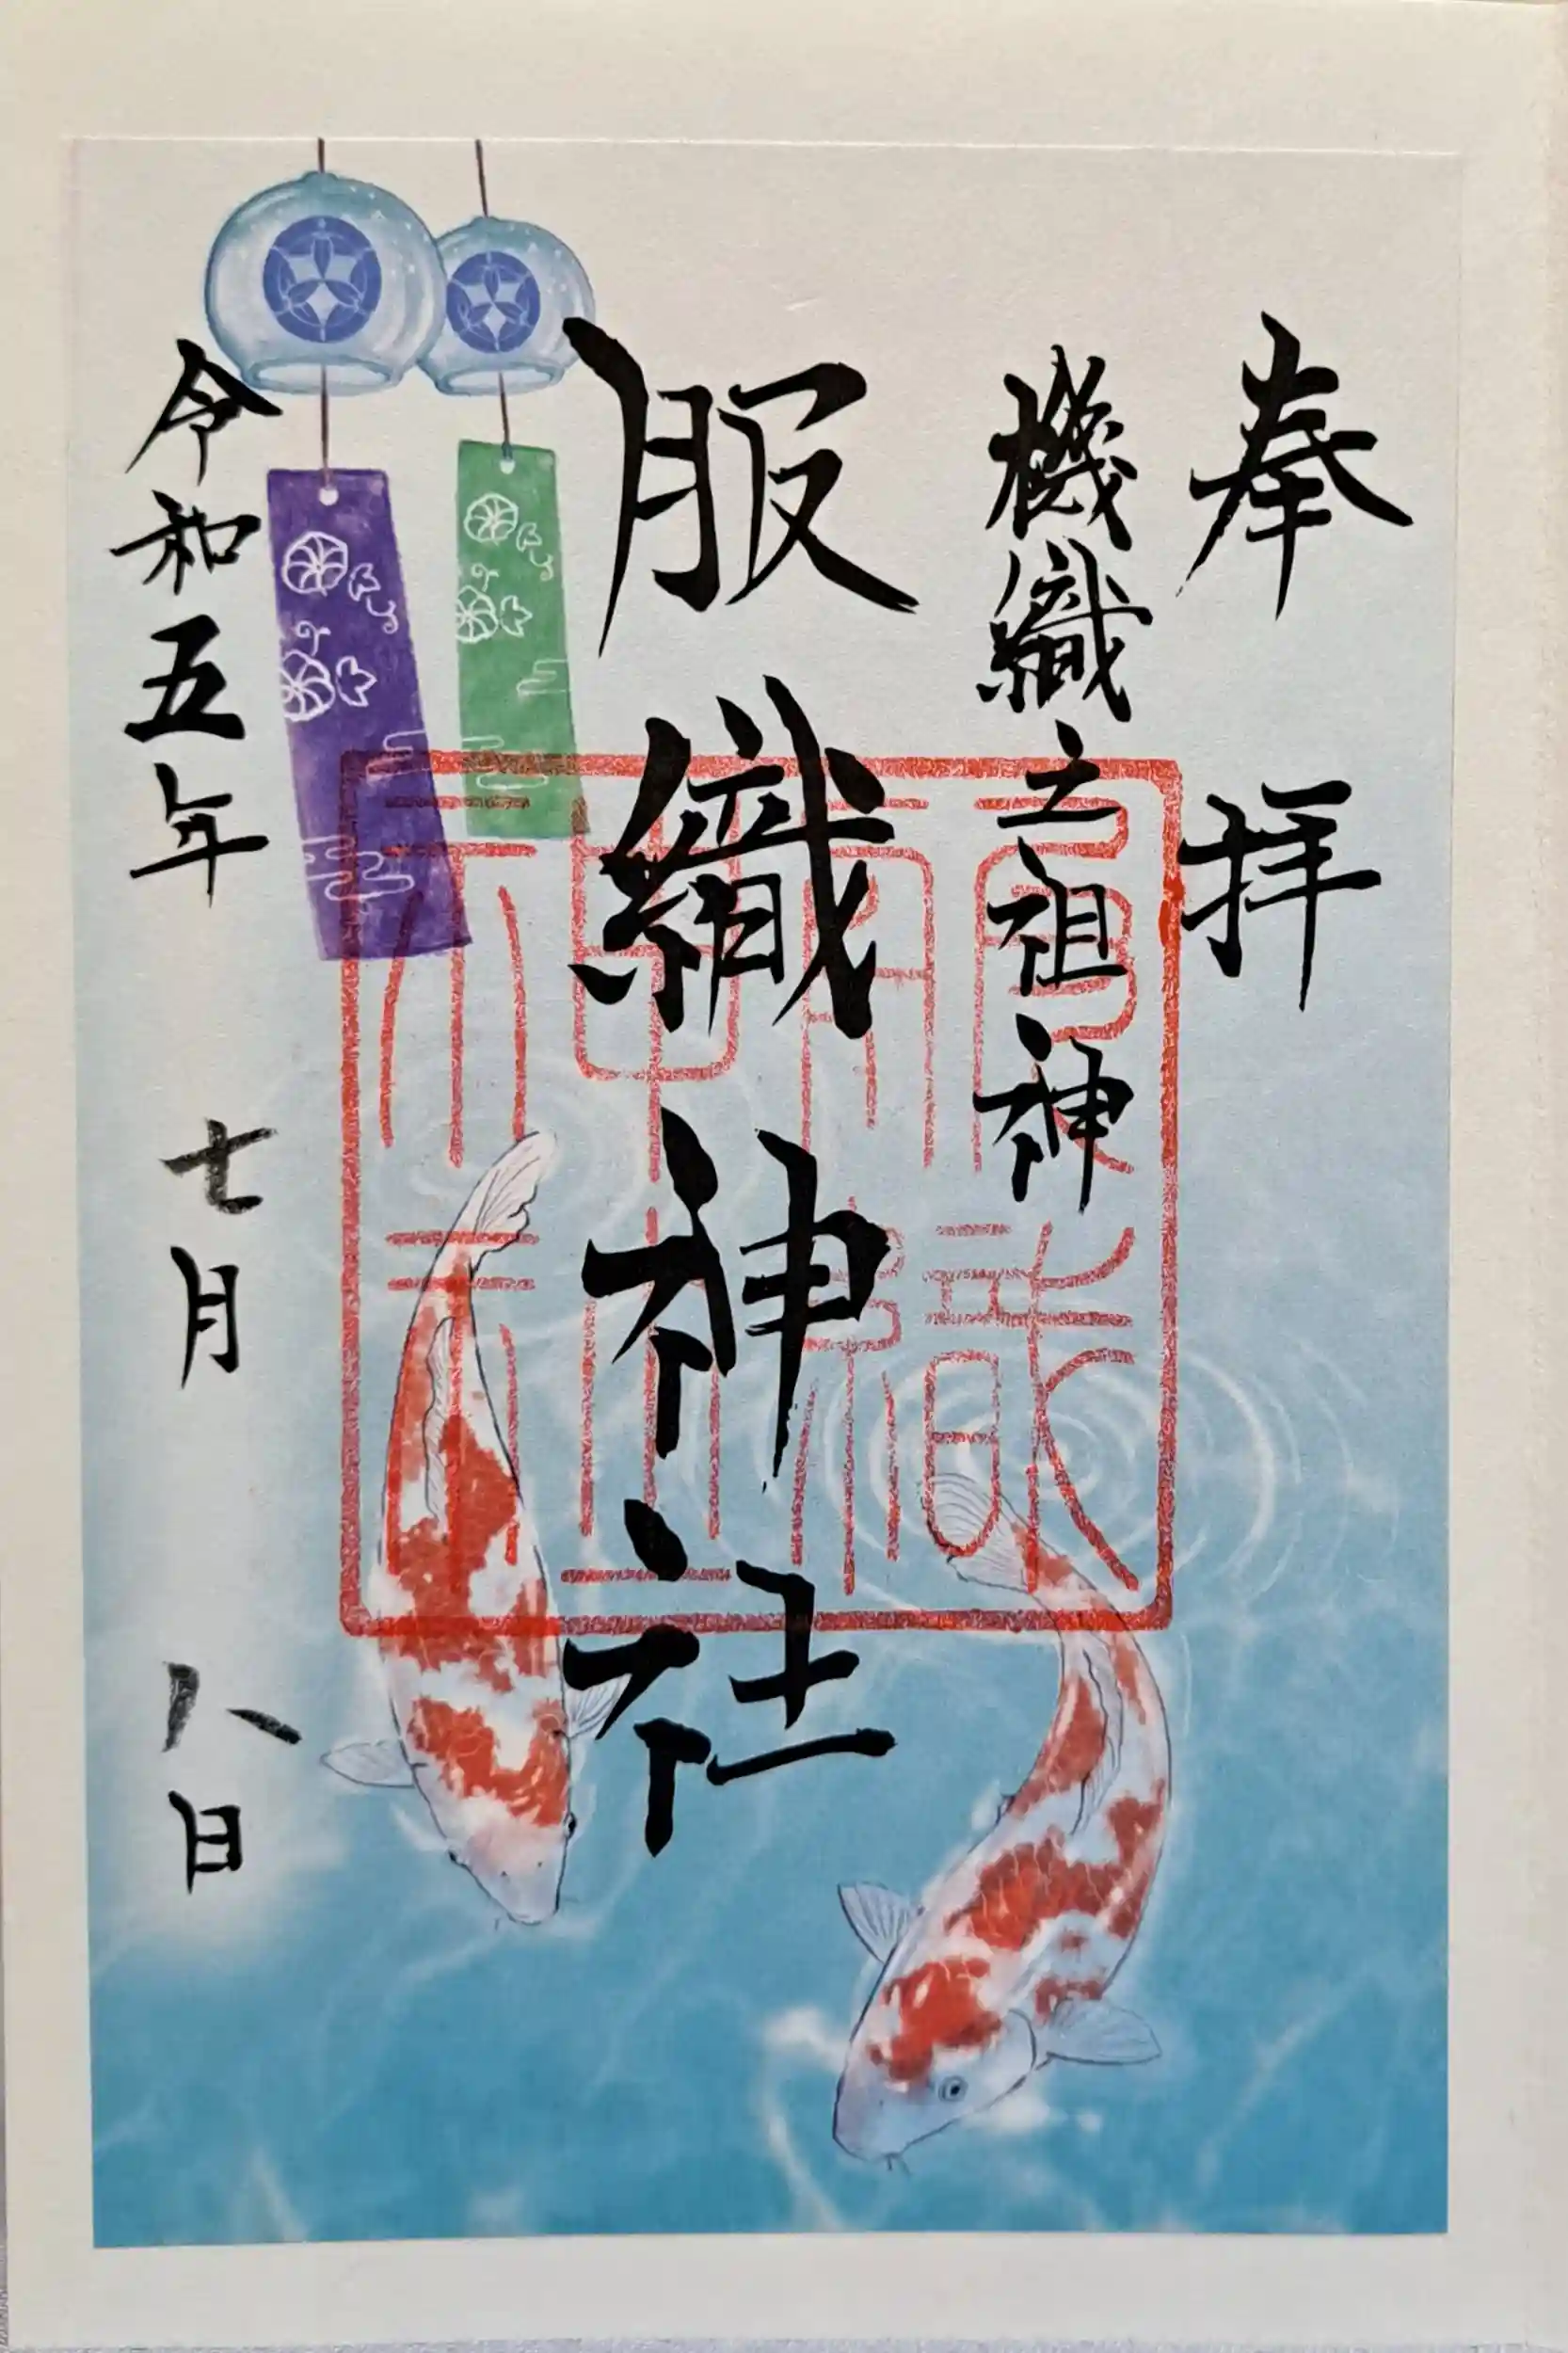 奉拝
機織之祖神
服織神社
令和五年 七月 八日